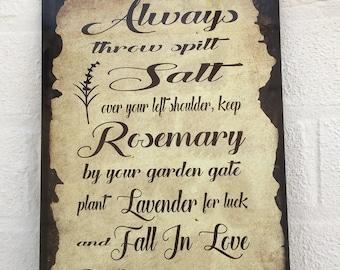 Always
throw spilt
Salt
over your left shoulder, keep
Rosemary
by your garden gate
plant Lavender for luck
and Fall In Love